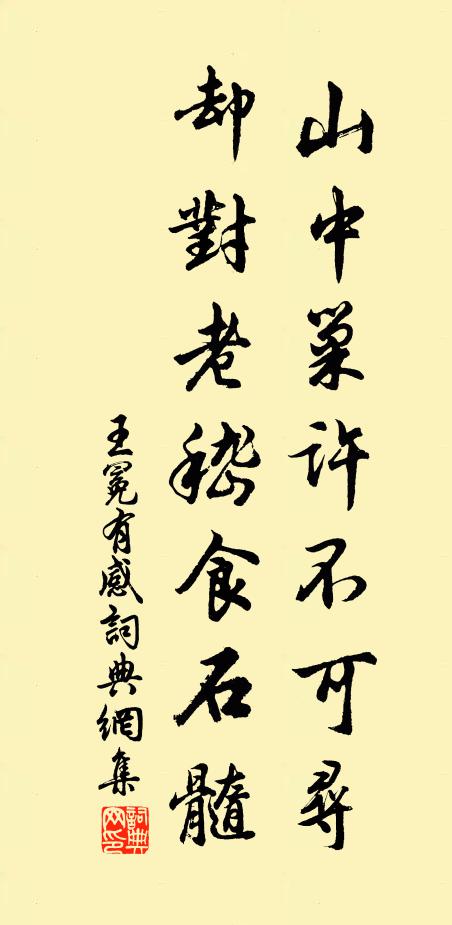 山中巢許不可尋
却對老嵇食石髓
王冕有感詞典網集
詞典網印